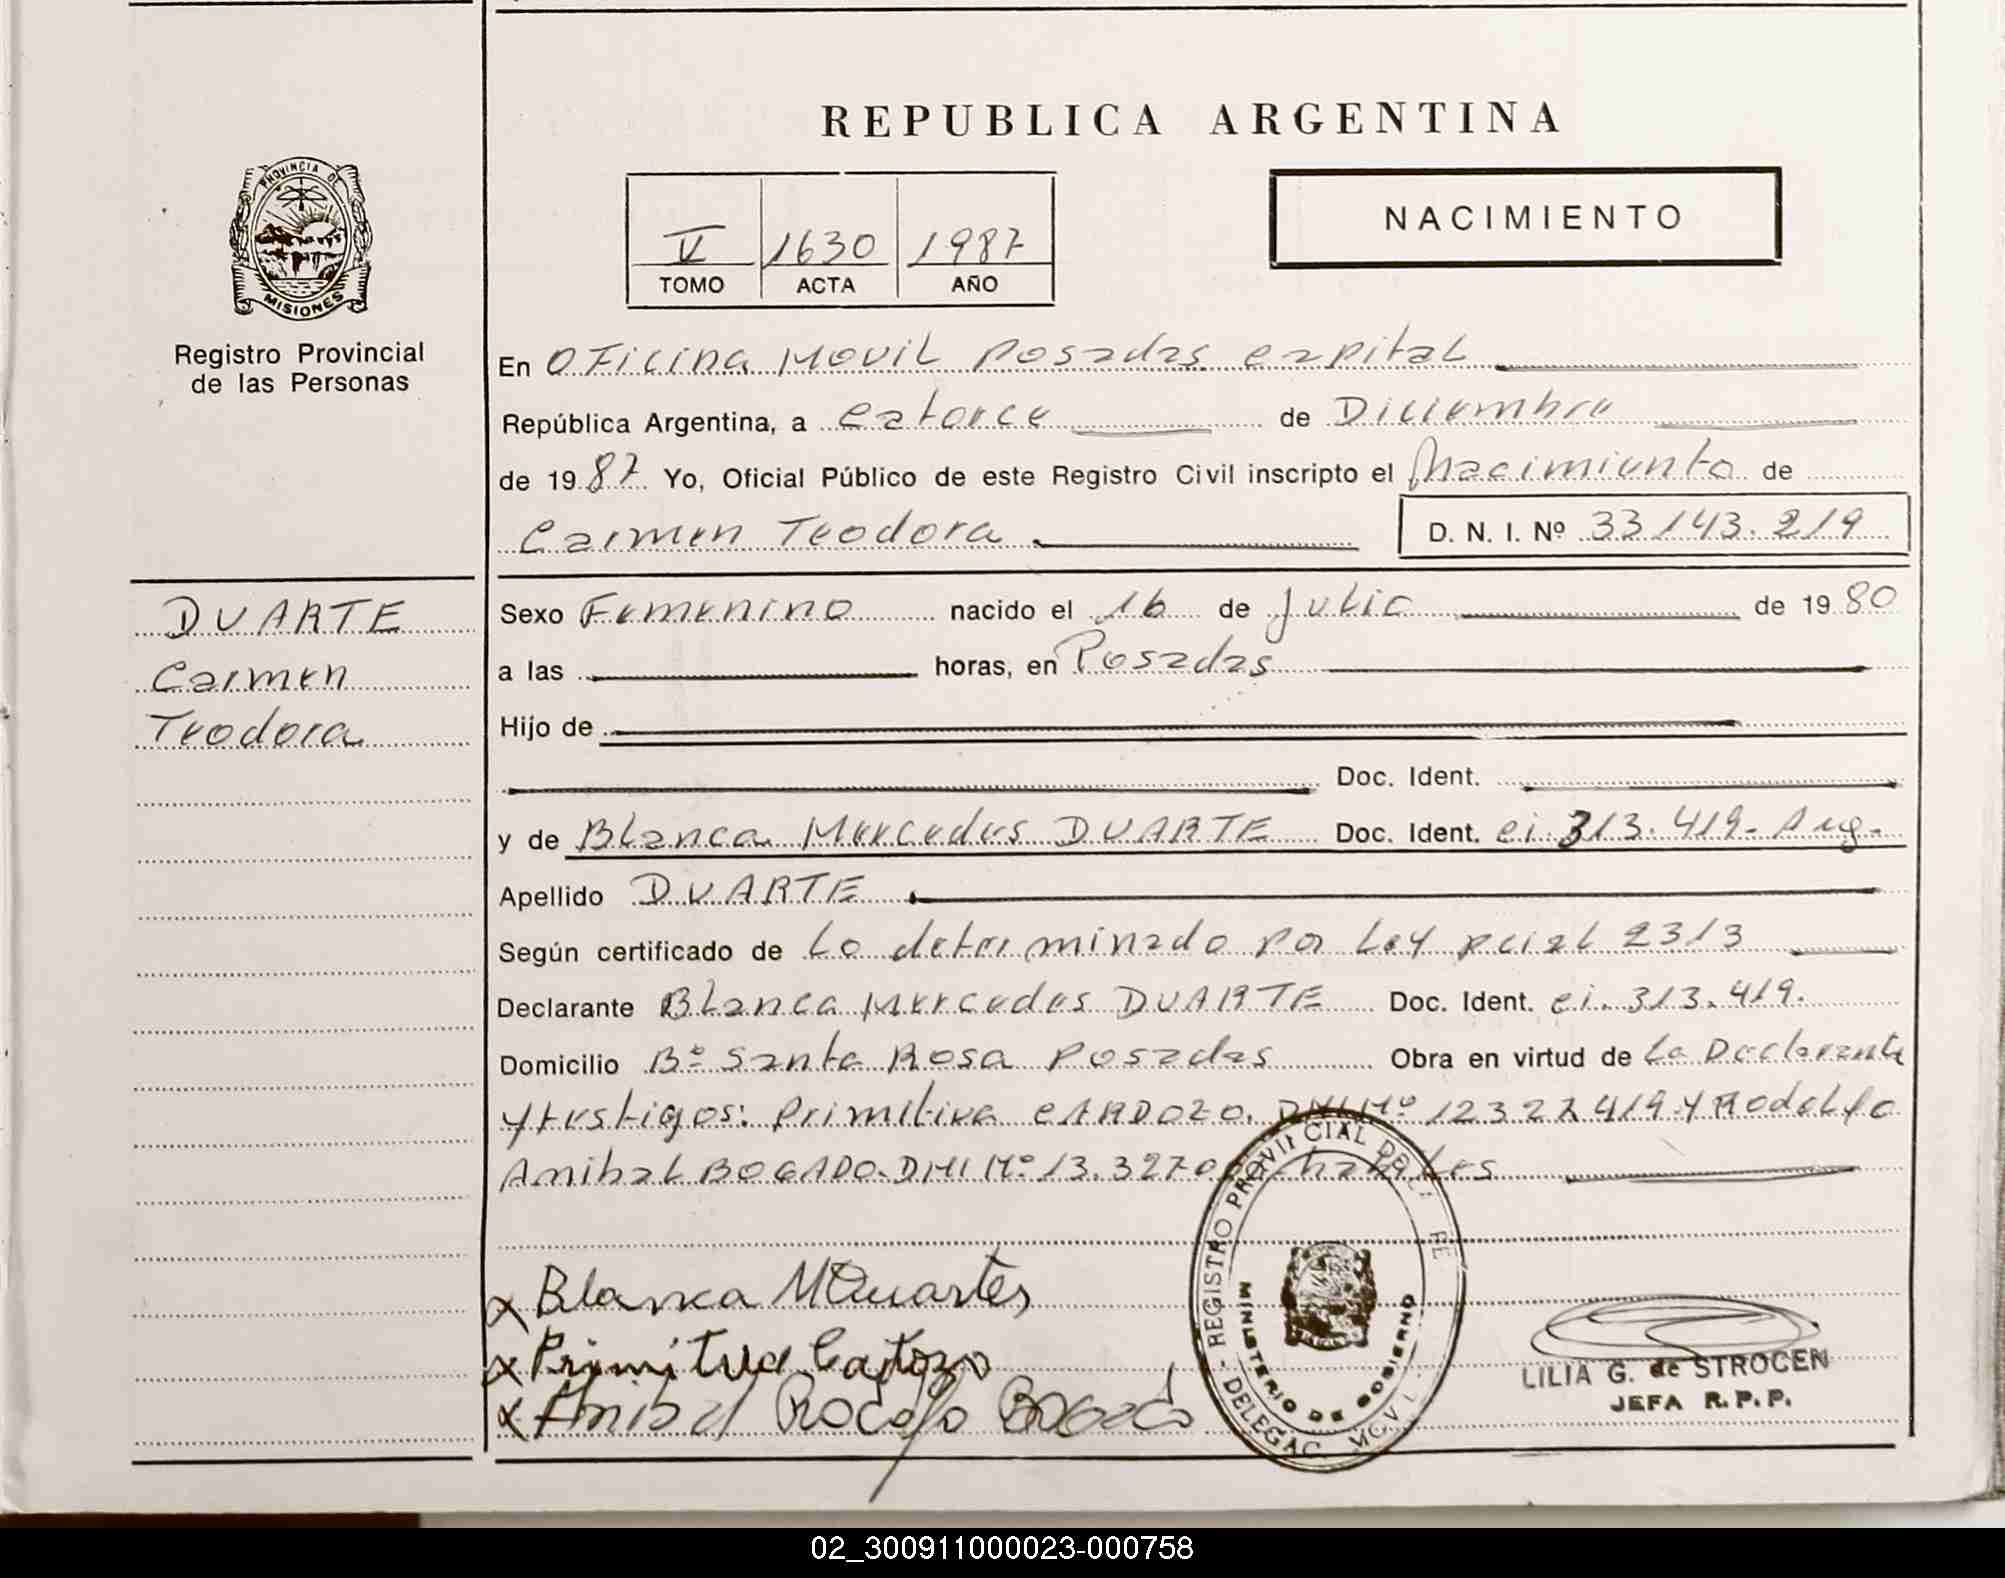 REPUBLICA ARGENTINA
PROVINCIA DE
MISIONES
Registro Provincial
de las Personas
V 1630 1987
TOMO ACTA AÑO
NACIMIENTO
En Oficina Movil Posadas capital
República Argentina, a catorce de Diciembre
de 1987 Yo, Oficial Público de este Registro Civil inscripto el Nacimiento de
Carmen Teodora D. N. I. Nº 33143.219
DUARTE
Carmen
Teodora
Sexo Femenino nacido el 16 de Julio de 1980
a las horas, en Posadas
Hijo de
Doc. Ident.
y de Blanca Mercedes DUARTE Doc. Ident. ci. 313.419- Arg.
Apellido DUARTE
Según certificado de Lo determinado por Ley pcial 2313
Declarante Blanca Mercedes DUARTE Doc. Ident. ci. 313.419.
Domicilio Bº Santa Rosa Posadas Obra en virtud de La Declarante
y testigos: Primitiva CARDOZO. DNI Nº 12327419 y Rodolfo
Anibal BOGADO. DNI Nº 13.3270
Blanca M Duartes
Primitiva
Anibal Rodolfo Bogado
REGISTRO PROVINCIAL DE
MINISTERIO DE GOBIERNO
DELEGAC. MOVIL
LILIA G. de STROCEN
JEFA R.P.P.
02_300911000023-000758